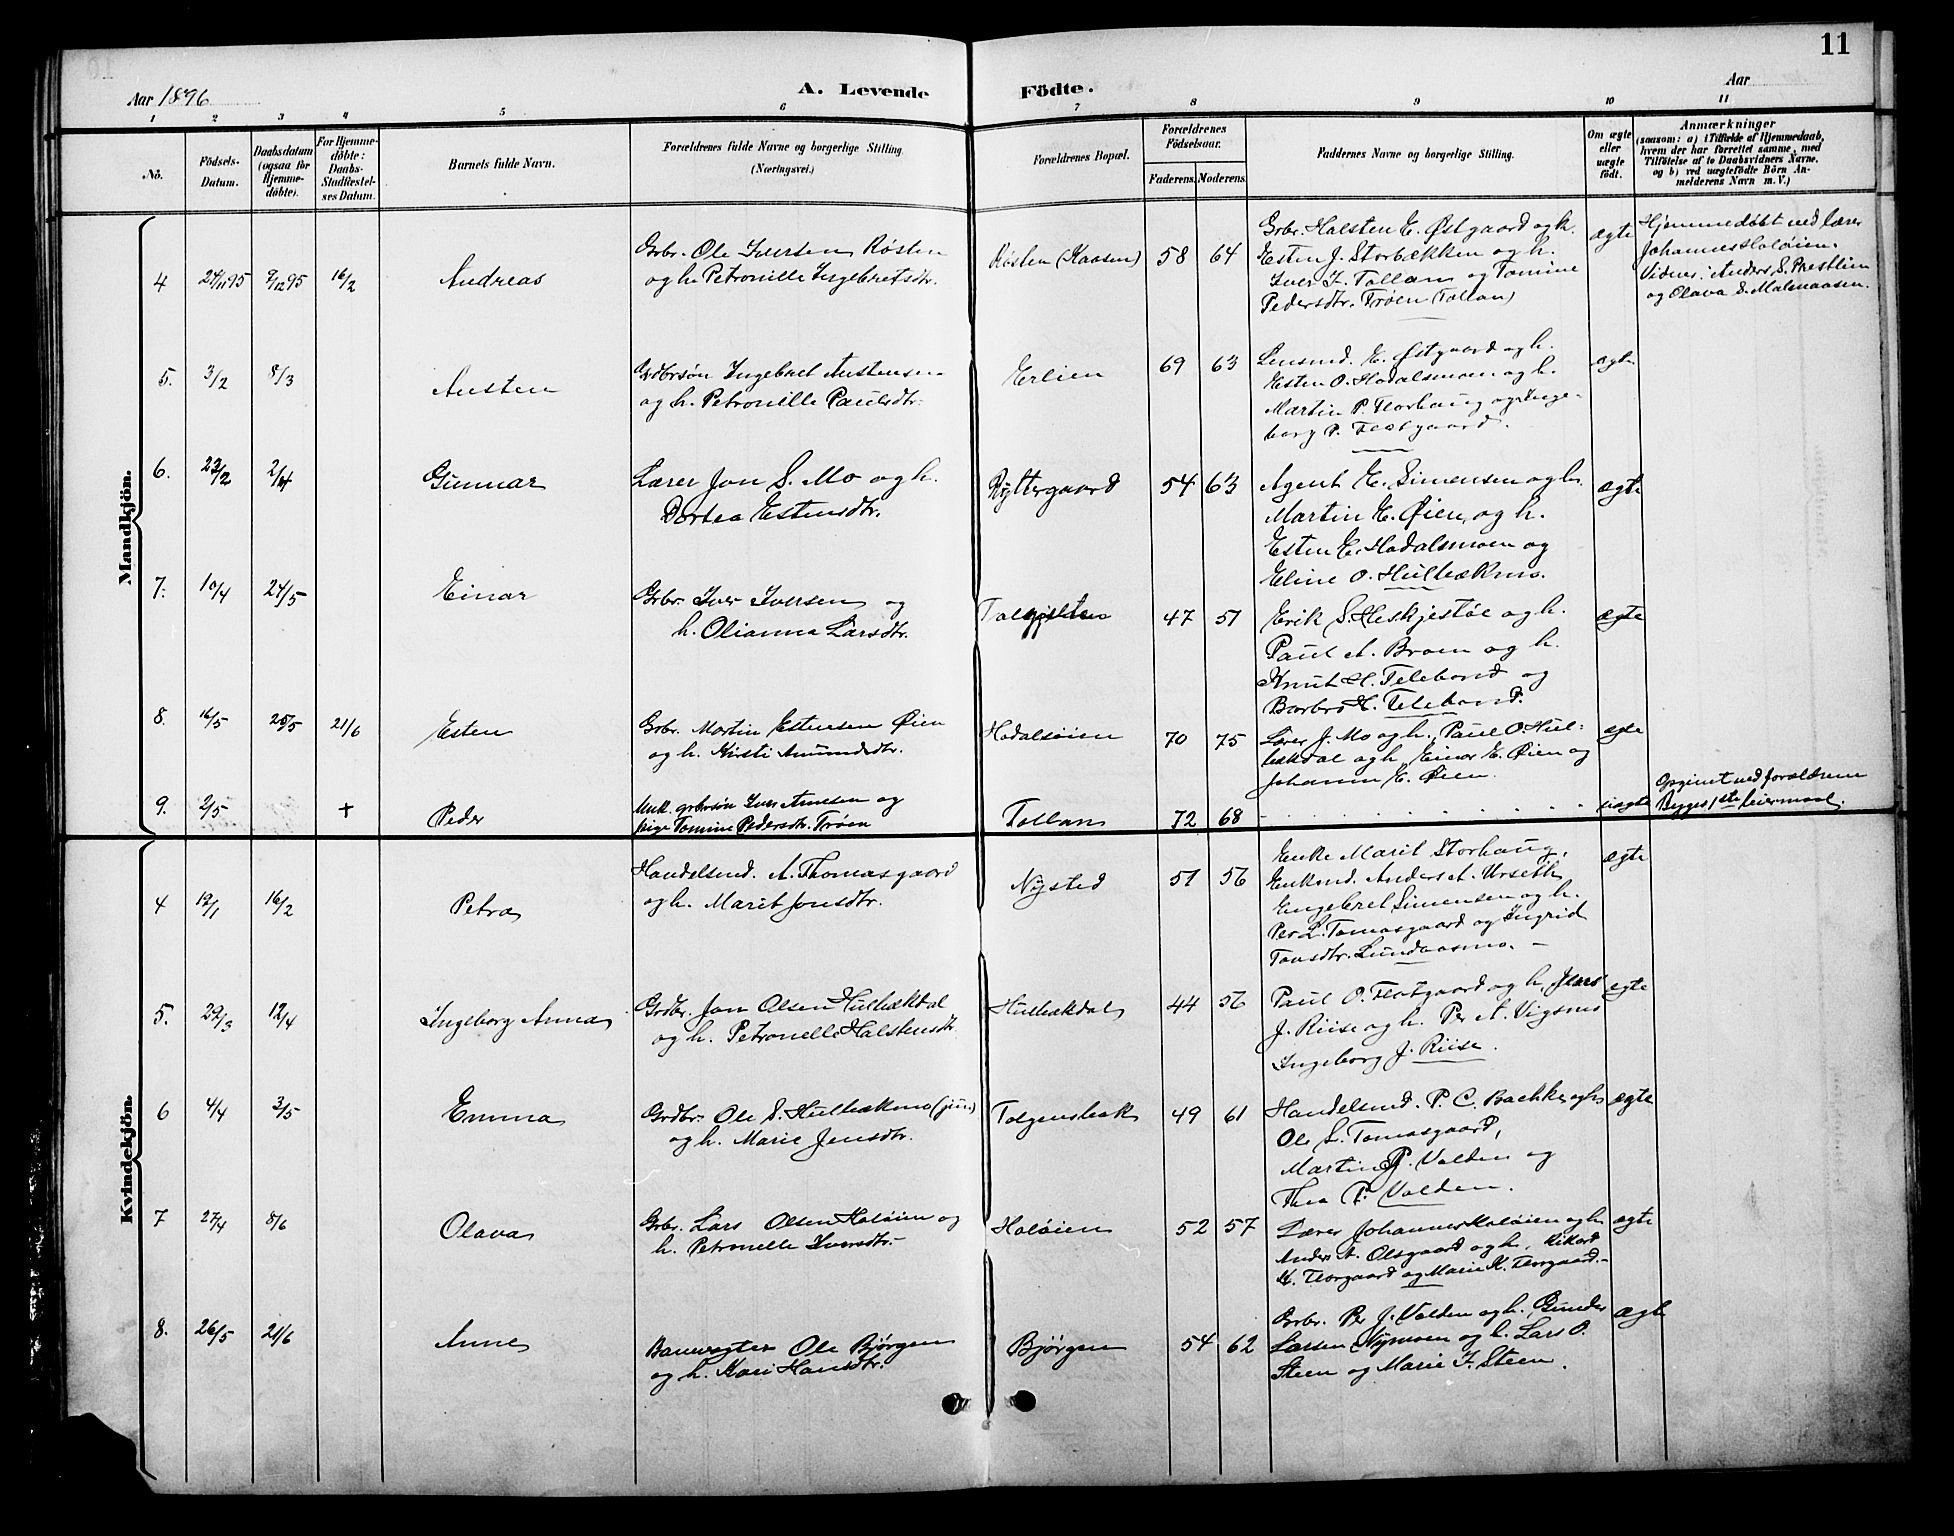 11
Aar 1896
A. Levende Födte.
Aar
1 2 3 4 5 6 7 8 9 10 11
No.
Födsels-Datum.
Daabsdatum (ogsaa for Hjemme-döbte).
For Hjemme-döbte: Daabs-Stadfæstel-ses Datum.
Barnets fulde Navn.
Forældrenes fulde Navne og borgerlige Stilling. (Næringsvei.)
Forældrenes Bopæl.
Forældrenes Födselsaar.
Faderens. Moderens.
Faddernes Navne og borgerlige Stilling.
Om ægte eller uægte födt.
Anmærkninger
(saasom: a) i Tilfælde af Hjemmedaab, hvem der har forrettet samme, med Tilföielse af to Daabsvidners Navne, og b) ved uægtefödte Börn Anmelderens Navn m. V.)
Mandkjön.
4 24/11 95 9/12 95 16/2 Andreas
Grbr. Ole Iversen Røsten
og h. Petronille Ingebretsdtr.
Røsten (Kaasen) 58 64
Grbr. Halsten E. Østgaard og h.
Esten J. Storbækken og h.
Iver I. Tollan og Tomine
Pedersdtr. Trøen (Tollan)
ægte
Hjemmedøbt ved lærer
Johannes Holøien.
Vidner: Anders S. Prestlien
og Olava S. Malmaasen.
5. 3/2 8/3 Austen
Grdbrsøn Ingebret Austensen
og h. Petronille Paulsdtr.
Erlien 69 63
Lensmd. E. Østgaard og h.
Esten O. Hodalsmoen og h.
Martin P. Florhaug og Inge-
borg P. Flotgaard.
ægte
6. 23/2 2/4 Gunnar
Lærer Jon S. Mo og h.
Dortea Estensdtr.
Ryttergaard 54 63
Agent E. Simensen og h.
Martin E. Øien, og h.
Esten E. Hodalsmoen og
Eline O. Hulbækmo.
ægte
7. 10/4 24/5 Einar
Grbr. Iver Iversen og
h. Olianna Larsdtr.
47 51
Erik S. Heskjestøe og h.
Paul A. Broen og h.
Knut H. Telebond og
Barbro H. Telebond.
ægte
8. 16/5 25/5 21/6 Esten
Grbr. Martin Estensen Øien
og h. Kirsti Amundsdtr.
Hodalsøien 70 75
Lærer J. Mo og h., Paul O. Hul-
bækdal og h, Einar E. Øien og
Johanne E. Øien.
ægte
9. 2/5 + Peder
Unk. grbrsøn Iver Arnesen og
pige Tomine Pedersdtr. Trøen
Tollan 72 68
uægte
Opgivet ved forældrene
Begges 1ste leiermaal.
Kvindekjön.
4 12/1 16/2 Petra
Handelsmd. A. Thomasgaard
og h. Marit Jonsdtr.
Nysted 51 56
Enke Marit Storhaug,
Enkemd. Anders A. Urseth
Engebret Simensen og h.
Per L. Tomasgaard og Ingrid
Tonsdtr. Lundaasmo.
ægte
5. 22/3 12/4 Ingeborg Anna
Grdbr. Jon Olsen Hulbækdal
og h. Petronelle Halstensdtr
Hulbækdal 44 56
Paul O. Flotgaard og h, Lars
J. Riise og h. Per A. Vigsmo
Ingeborg J. Riise.
ægte
6 4/4 3/5 Emma
Grdbr. Ole S. Hulbækmo (jun)
og h. Marie Jensdtr.
Tolgensbak 49 61
Handelsmd. P. C. Bachke og h
Ole L. Tomasgaard,
Martin P. Volden og
Thea P. Volden.
ægte
7 27/4 8/6 Olava
Grbr. Lars Olsen Holøien og
h. Petronelle Iversdtr.
Holøien 52 57
Lærer Johannes Holøien og h
Anders A. Olsgaard og h, Rikard
K. Florgaard og Marie K. Florgaard.
ægte
8. 26/5 21/6 Anne
Banevogter Ole Bjørgen
og h. Kari Hansdtr.
Bjørgen 54 62
Grbr. Per J. Volden og h. Gunder
Larsen Nymoen og h. Lars O.
Steen og Marie I. Steen.
ægte